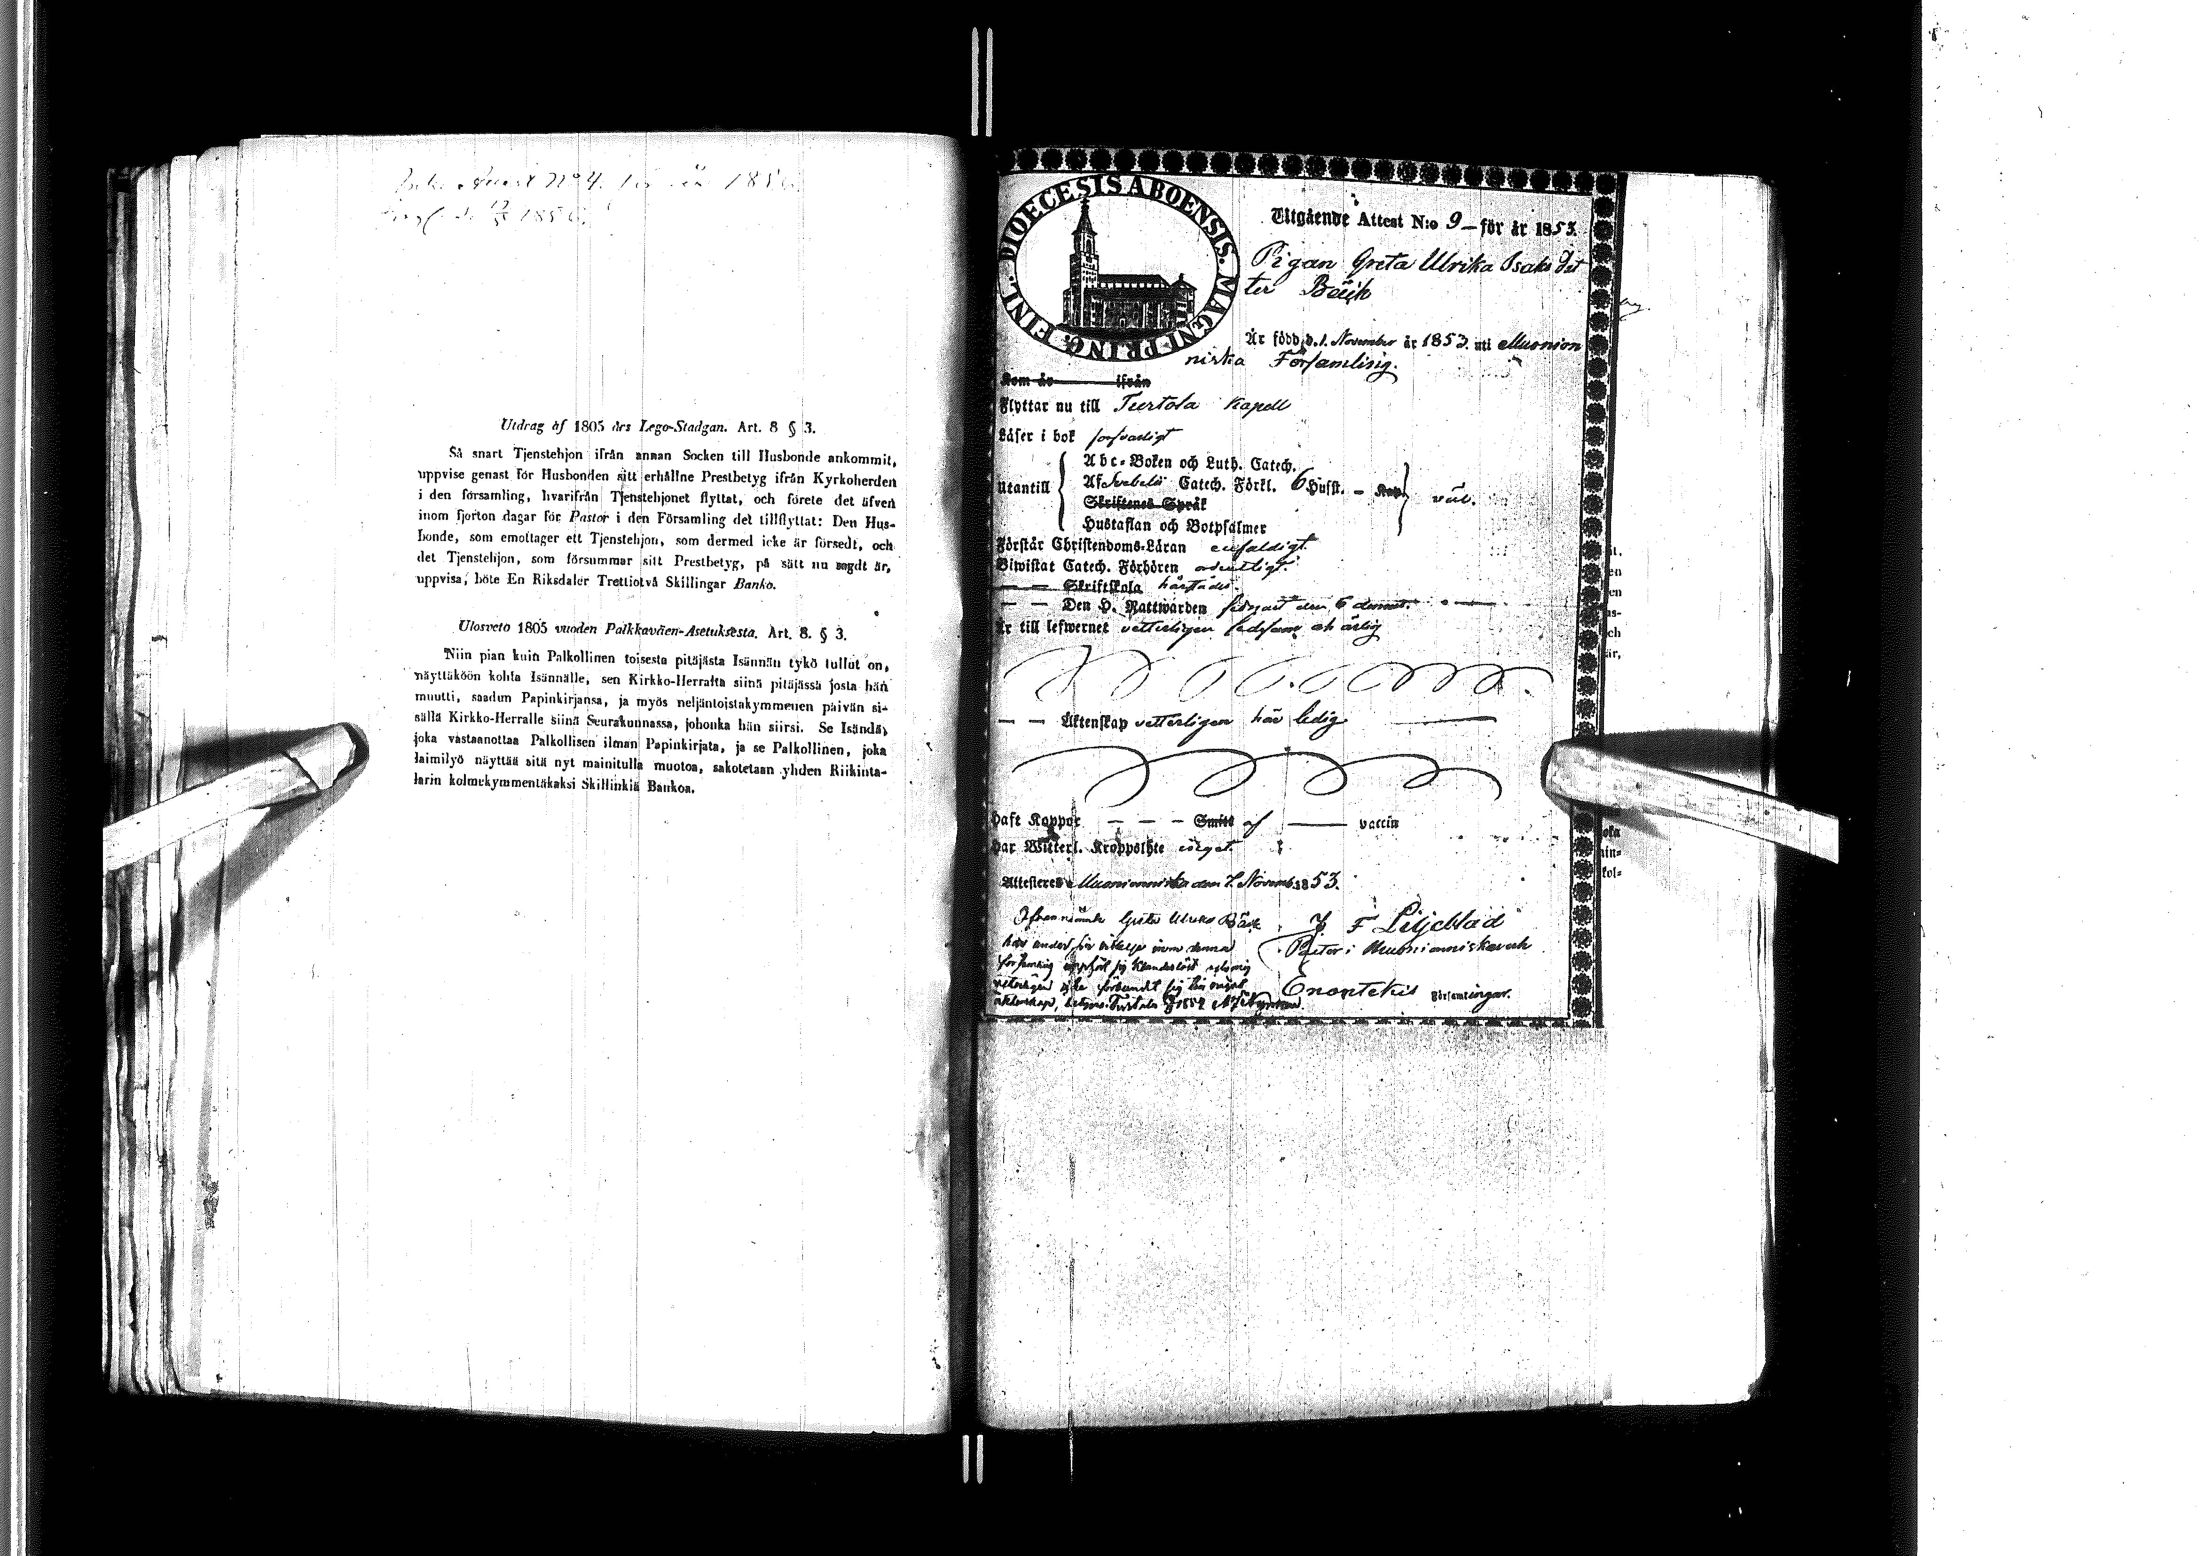 Attest No 4. för år 1856.
1856.
Utdrag af 1805 års Lego-Stadgan. Art. 8 § 3.
Så snart Tjenstehjon ifrån annan Socken till Husbonde ankommit,
uppvise genast för Husbonden sitt erhållne Prestbetyg ifrån Kyrkoherden
i den församling, hvarifrån Tjenstehjonet flyttat, och förete det äfven
inom fjorton dagar för Pastor i den Församling det tillflyttat: Den Hus-
bonde, som emottager ett Tjenstehjon, som dermed icke är försedt, och
det Tjenstehjon, som försummar sitt Prestbetyg, på sätt nu sagdt är,
uppvisa, böte En Riksdaler Trettiotvå Skillingar Banko.
Ulosveto 1805 vuoden Palkkaväen-Asetuksesta. Art. 8. § 3.
Niin pian kuin Palkollinen toisesta pitäjästä Isännän tykö tullut on,
näyttäköön kohta Isännälle, sen Kirkko-Herralta siinä pitäjässä josta hän
muutti, saadun Papinkirjansa, ja myös neljäntoistakymmenen päivän si-
sällä Kirkko-Herralle siinä Seurakunnassa, johonka hän siirsi. Se Isändä,
joka vastaanottaa Palkollisen ilman Papinkirjata, ja se Palkollinen, joka
laimilyö näyttää sitä nyt mainitulla muotoa, sakotetaan yhden Riikinta-
larin kolmekymmentäkaksi Skillinkiä Bankoa.
DIOECESIS ABOENSIS. MAGNI PRINC. FINL.
Utgående Attest N:o 9 – för år 1853.
Pigan Greta Ulrika Isaks dot
ter Bäck
Är född d. 1. November år 1853. uti Muonion
niska Församling.
Kom år ifrån
Flyttar nu till Turtola Kapell
Läser i bok försvarligt
Abc-Boken och Luth. Catech.
Utantill Af Svebelii Catech. Förkl. 6 Hufst. – Kap. väl.
Skriftenes Språk
Hustaflan och Botpsalmer
Förstår Christendoms-Läran enfaldigt.
Biwistat Catech. Förhören ordentligt.
— — Skriftskola härstädes.
— — Den H. Nattwarden sednast den 6 dennes.
Är till lefwernet vetterligen ledsam och ärlig
— — Äktenskap vetterligen här ledig
Haft Koppor — — — Smitt af —— vaccin
Har Witterl. Kroppslyte intet.
Attesteras Muonioniska den 7. Novemb. 1853.
Ofvannämnde Greta Ulrika Bäck
J F Liljeblad
har under sin vistelse inom denna
Pastor i Muonioniska och
församling uppfört sig klanderlöst
Enontekis Församlingar.
vetterligen icke förbundit sig till något
äktenskap, betygas. Turtola 1854